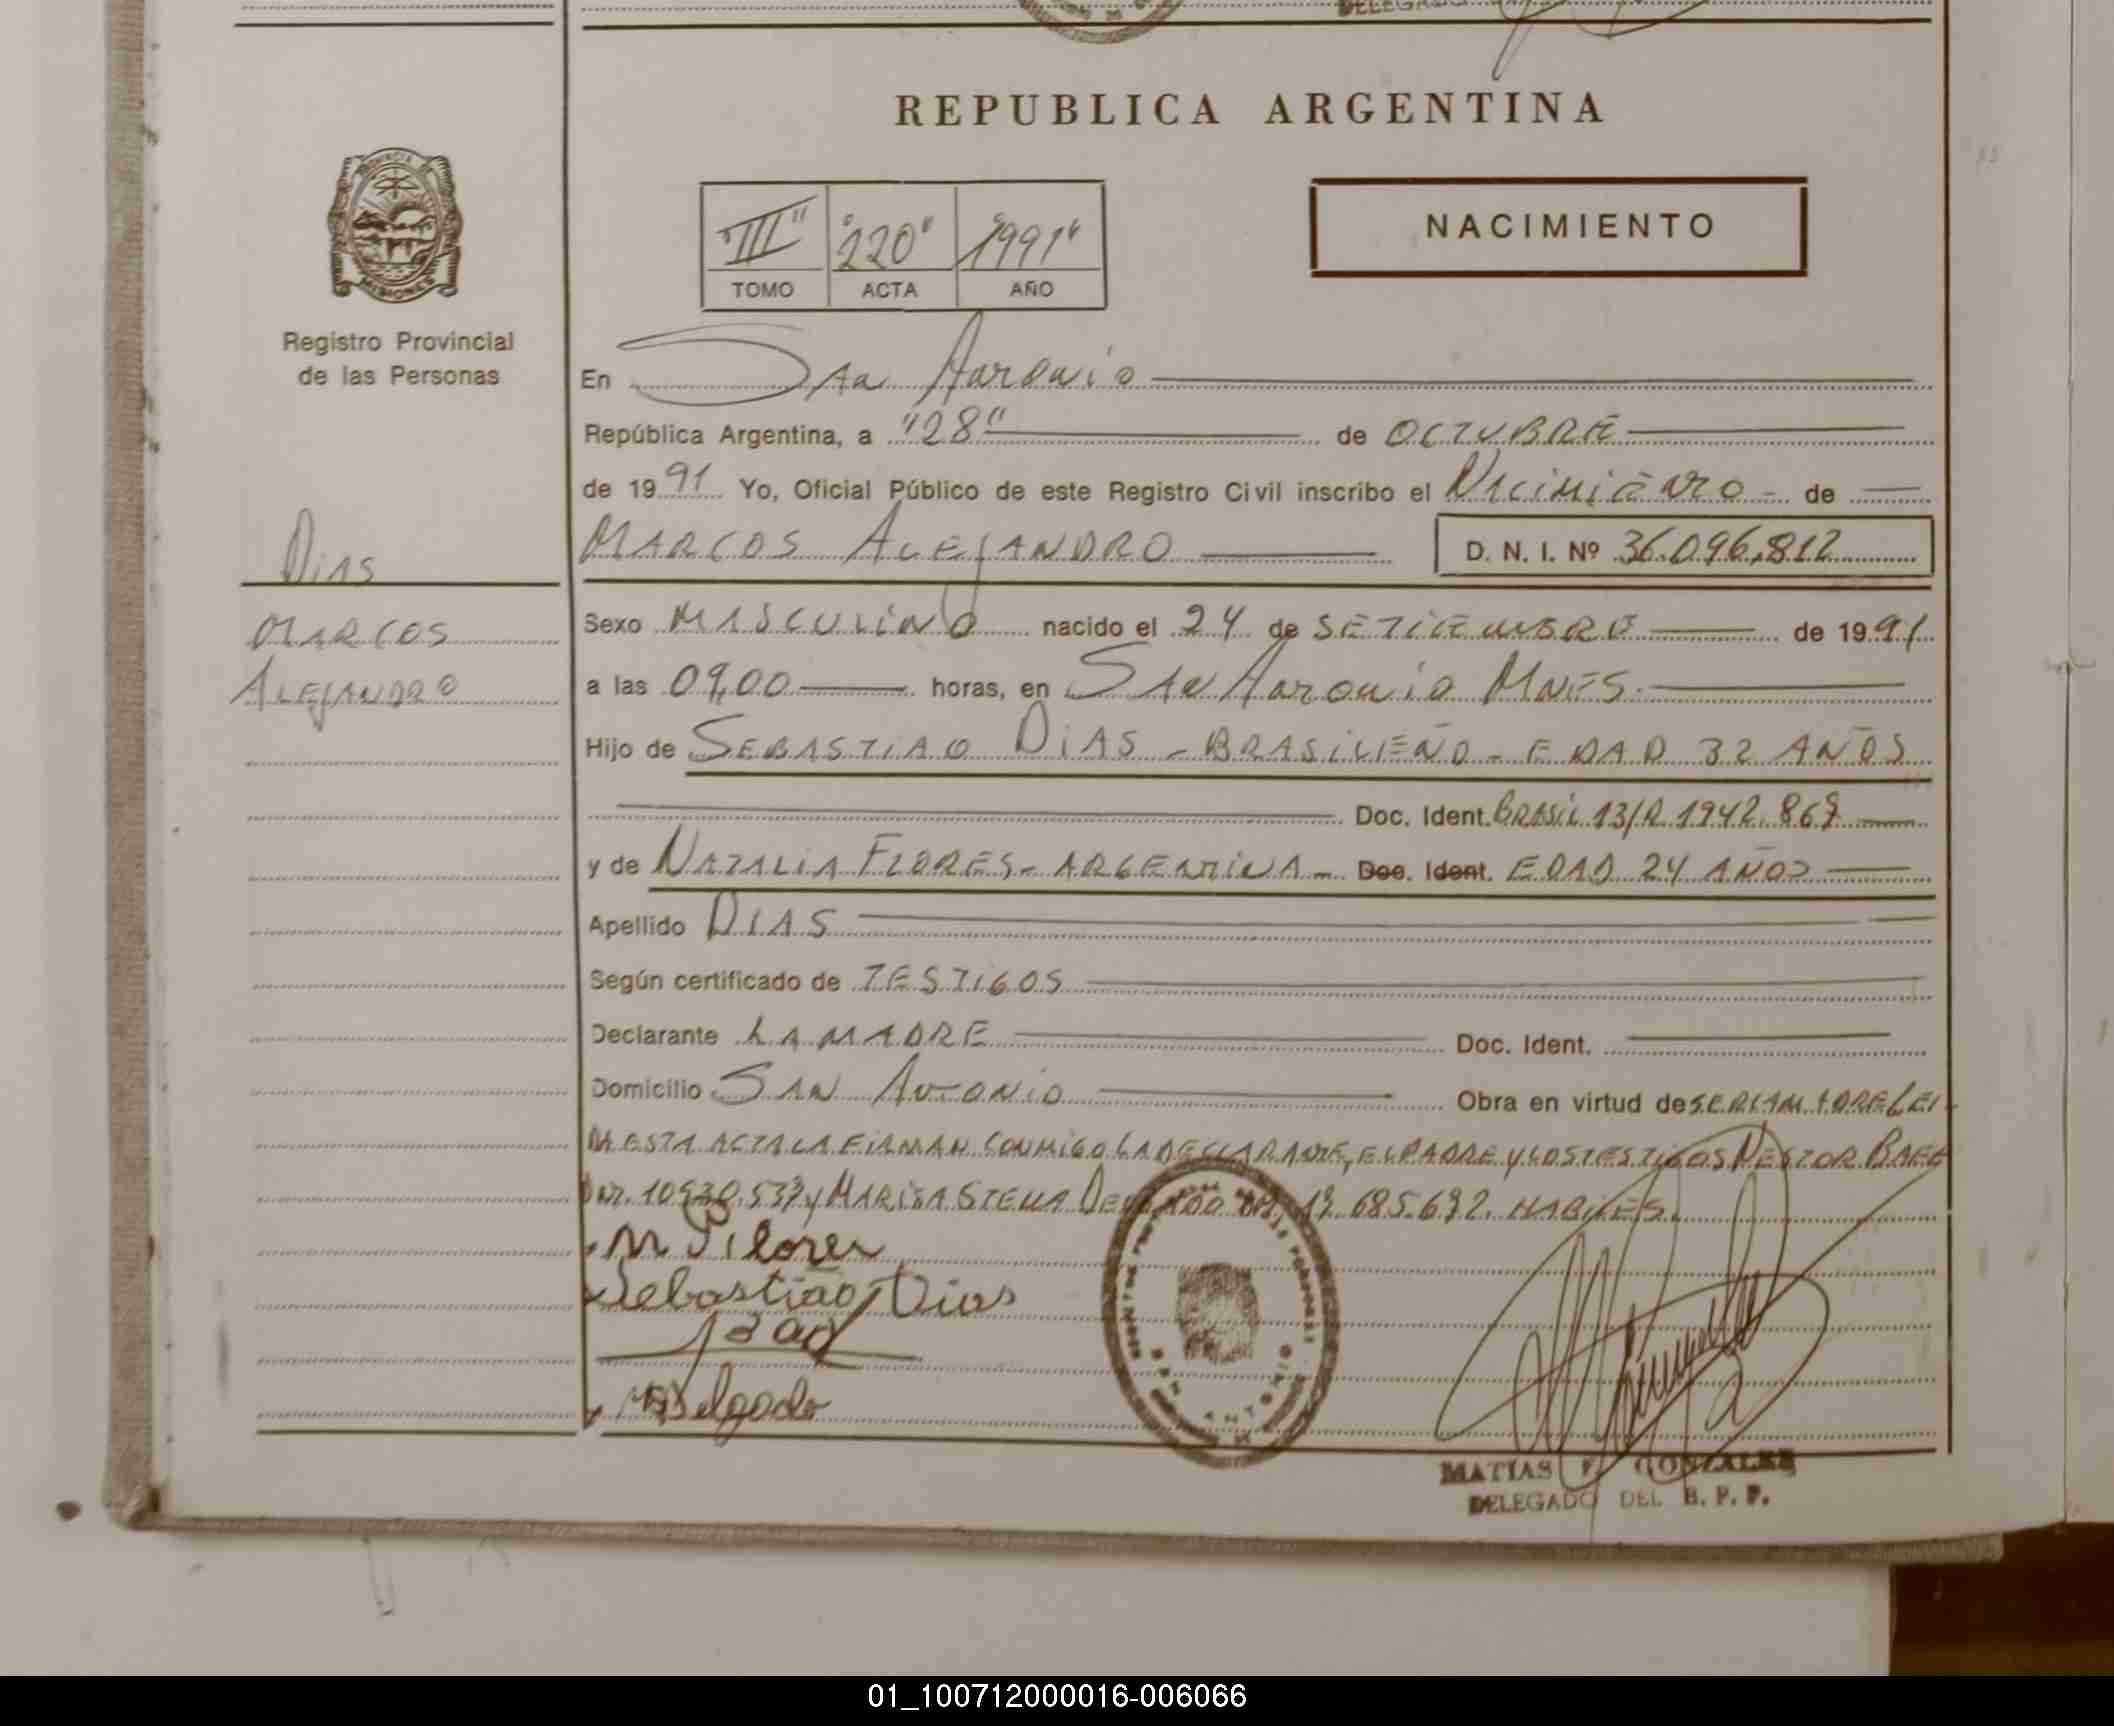 DELEGADO
REPUBLICA ARGENTINA
PROVINCIA
MISIONES
Registro Provincial
de las Personas
"III" "220" "1991"
TOMO ACTA AÑO
NACIMIENTO
En San Antonio
República Argentina, a "28" de OCTUBRE
de 1991 Yo, Oficial Público de este Registro Civil inscribo el Nacimiento de
MARCOS ALEJANDRO D. N. I. Nº 36.096.812
Dias
MARCOS
ALEJANDRO
Sexo MASCULINO nacido el 24 de SETIEMBRE de 1991
a las 09,00 horas, en San Antonio Mnes.
Hijo de SEBASTIAO DIAS - BRASILEÑO - EDAD 32 AÑOS
Doc. Ident. BRASIL 13/R 1942.869
y de NATALIA FLORES - ARGENTINA - Doc. Ident. EDAD 24 AÑOS
Apellido DIAS
Según certificado de TESTIGOS
Declarante LA MADRE Doc. Ident.
Domicilio SAN ANTONIO Obra en virtud de
ESTA ACTA LA FIRMAN CONMIGO LA DECLARANTE, EL PADRE Y LOS TESTIGOS NESTOR
y MARISA STELLA HABILES.
N Flores
Sebastião Dias
Delgado
SAN ANTONIO
MATIAS F. GONZALEZ
DELEGADO DEL R. P. P.
01_100712000016-006066